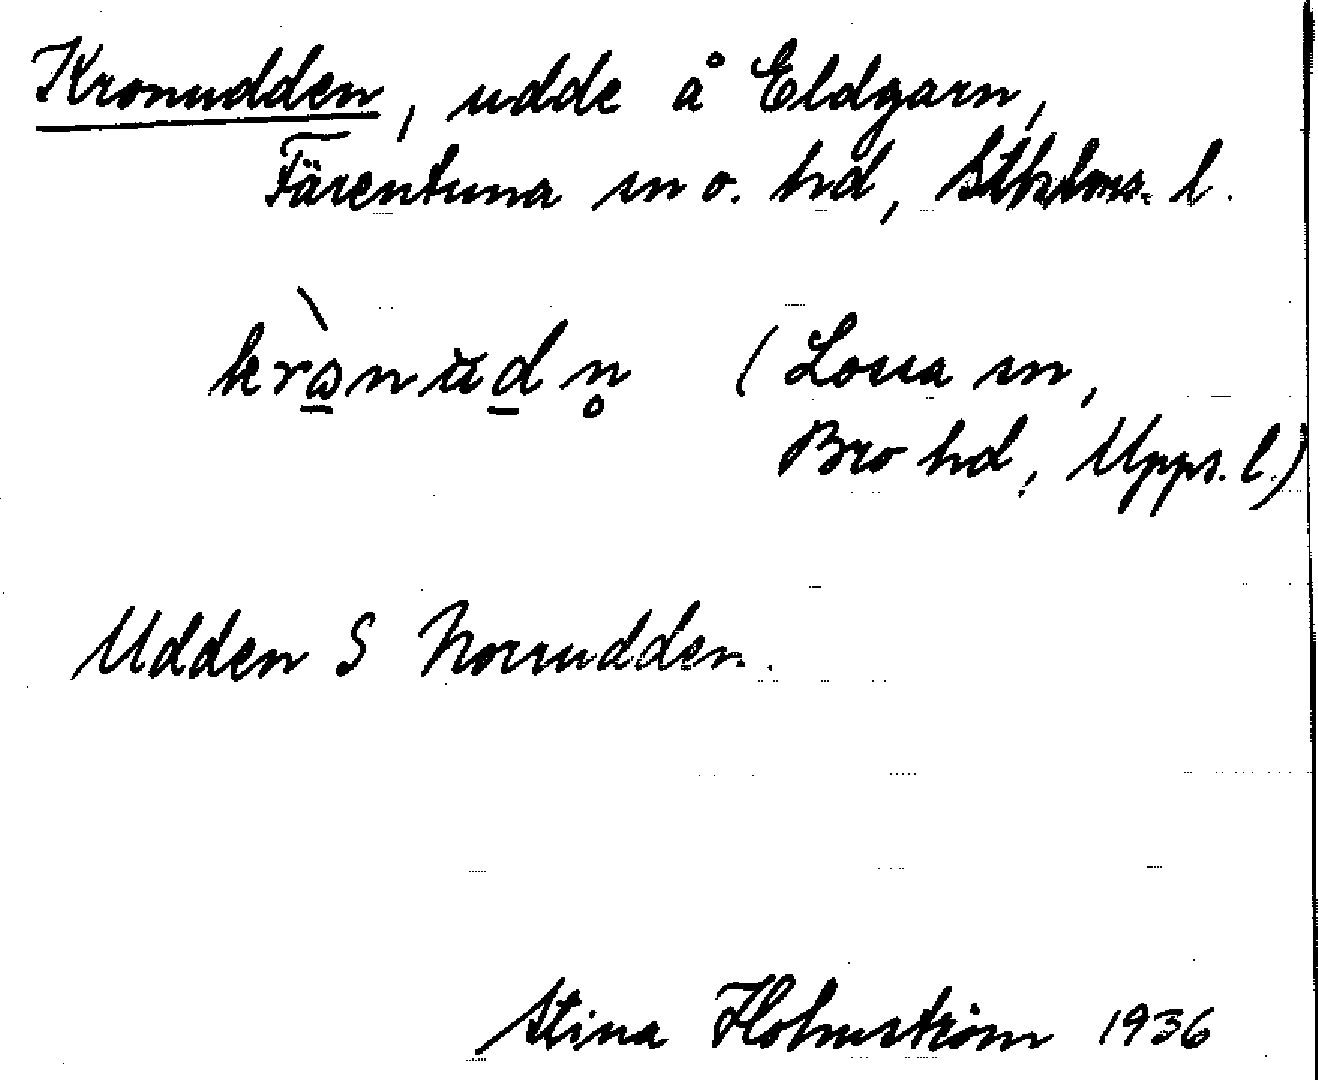 Kronudden, udde å Eldgarn,
Färentuna sn o. hd, Sthlms. l.
(Lossa sn,
Bro hd, Upps. l.)
Udden S Norrudden.
Stina Holmström 1936